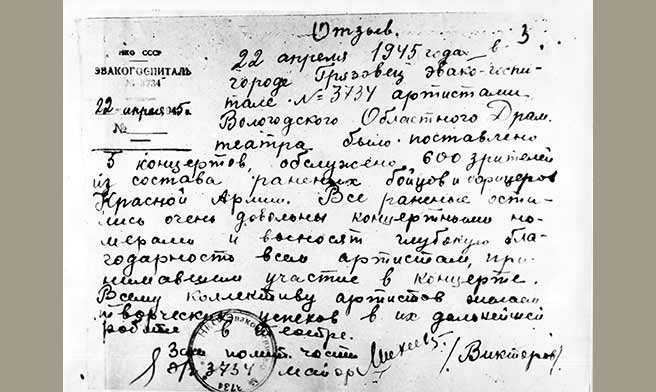 Отзыв.
3
НКО СССР
ЭВАКОГОСПИТАЛЬ
№ 3734
22 апреля 1945 г.
№
22 апреля 1945 года в
городе Грязовец эвако-госпи-
тале № 3734 артистами
Вологодского Областного Драм.
театра было поставлено
5 концертов, обслужено 600 зрителей
из состава раненых бойцов и офицеров
Красной Армии. Все раненые оста-
лись очень довольны концертными но-
мерами и выносят глубокую бла-
годарность всем артистам, при-
нимавшим участие в концерте.
Всему коллективу артистов желаем
творческих успехов в их дальнейшей
работе в театре.
Зам. полит. части
э/г 3734 майор
/Викторов/
НКО
3734